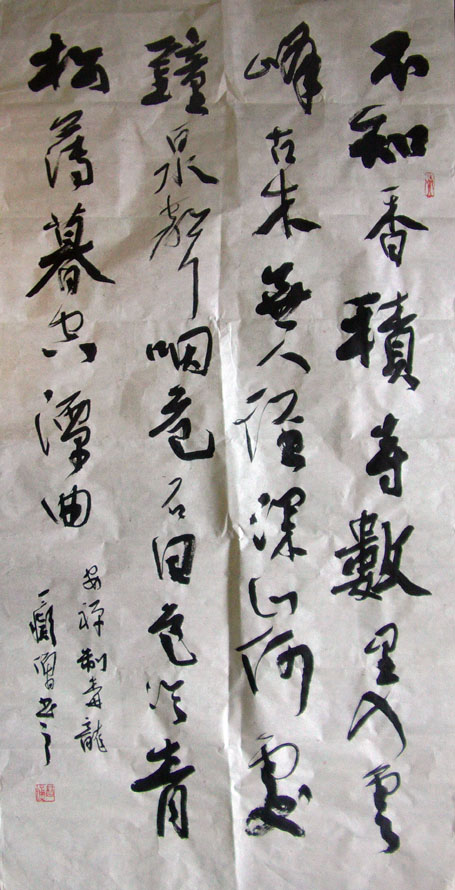 不知香積寺數里入雲
峰古木無人徑深山何處
鐘泉聲咽危石日色冷青
松薄暮空潭曲
安禪制毒龍
書之